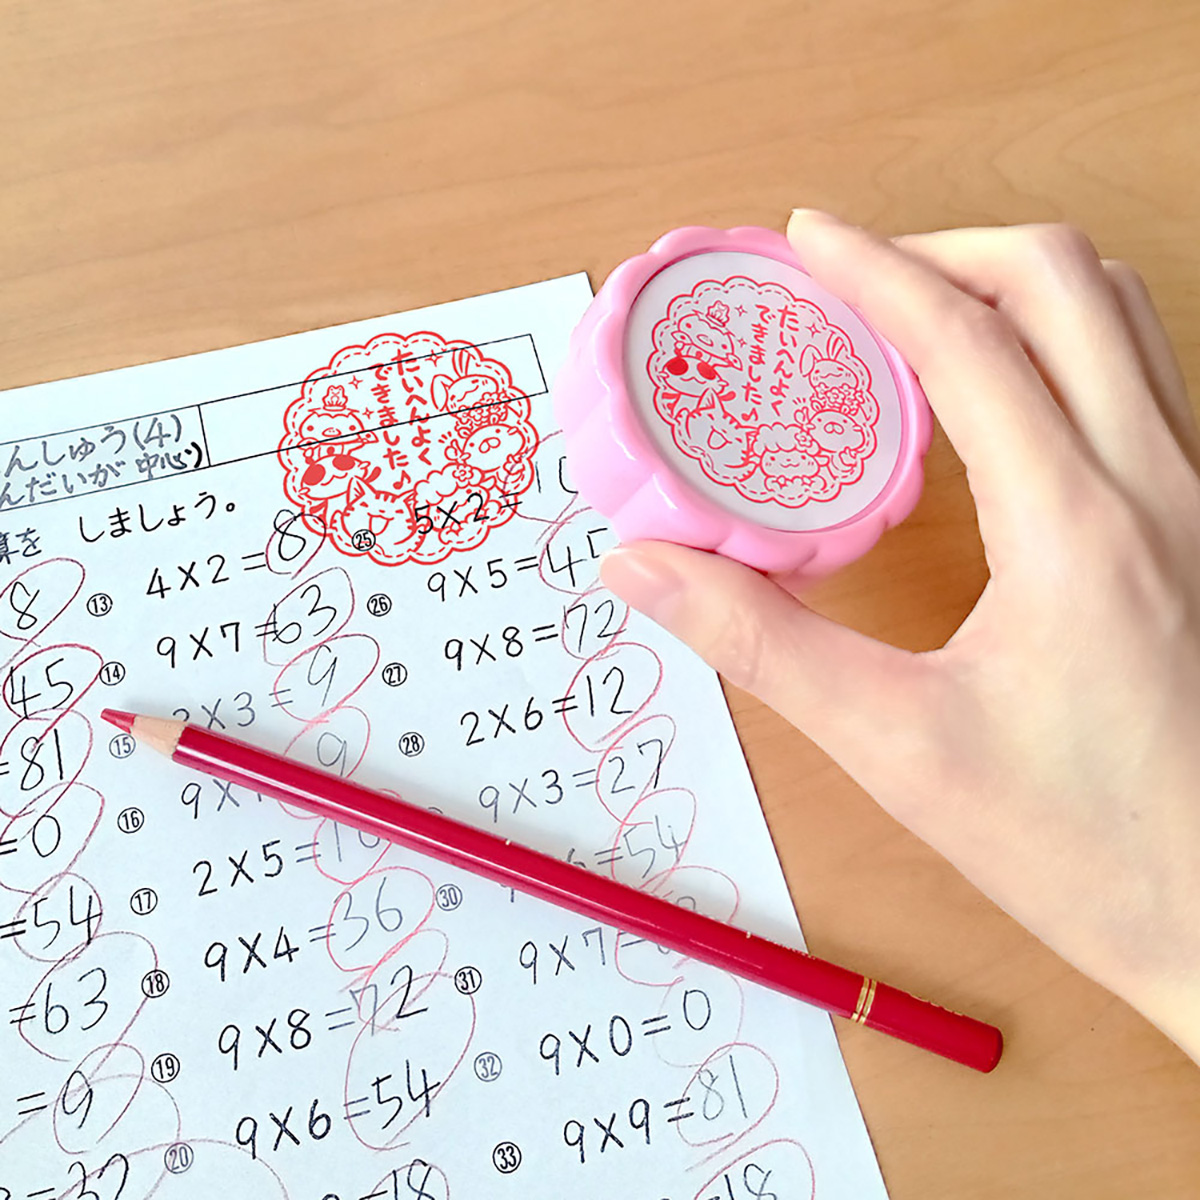 たいへんよく
できました♪
たいへんよく
できました♪
んしゅう(4)
んだいが 中心)
算を しましょう。
8
⑬ 4×2=8
㉕ 5×2=10
45
⑭ 9×7=63
㉖ 9×5=45
=81
⑮ ×3=9
㉗ 9×8=72
=0
⑯ 9× 9
㉘ 2×6=12
=54
⑰ 2×5=10
9×3=27
=63
⑱ 9×4=36
㉚ 6=54
=9
⑲ 9×8=72
㉛ 9×7=
=32
⑳ 9×6=54
㉜ 9×0=0
=18
㉝ 9×9=81
18